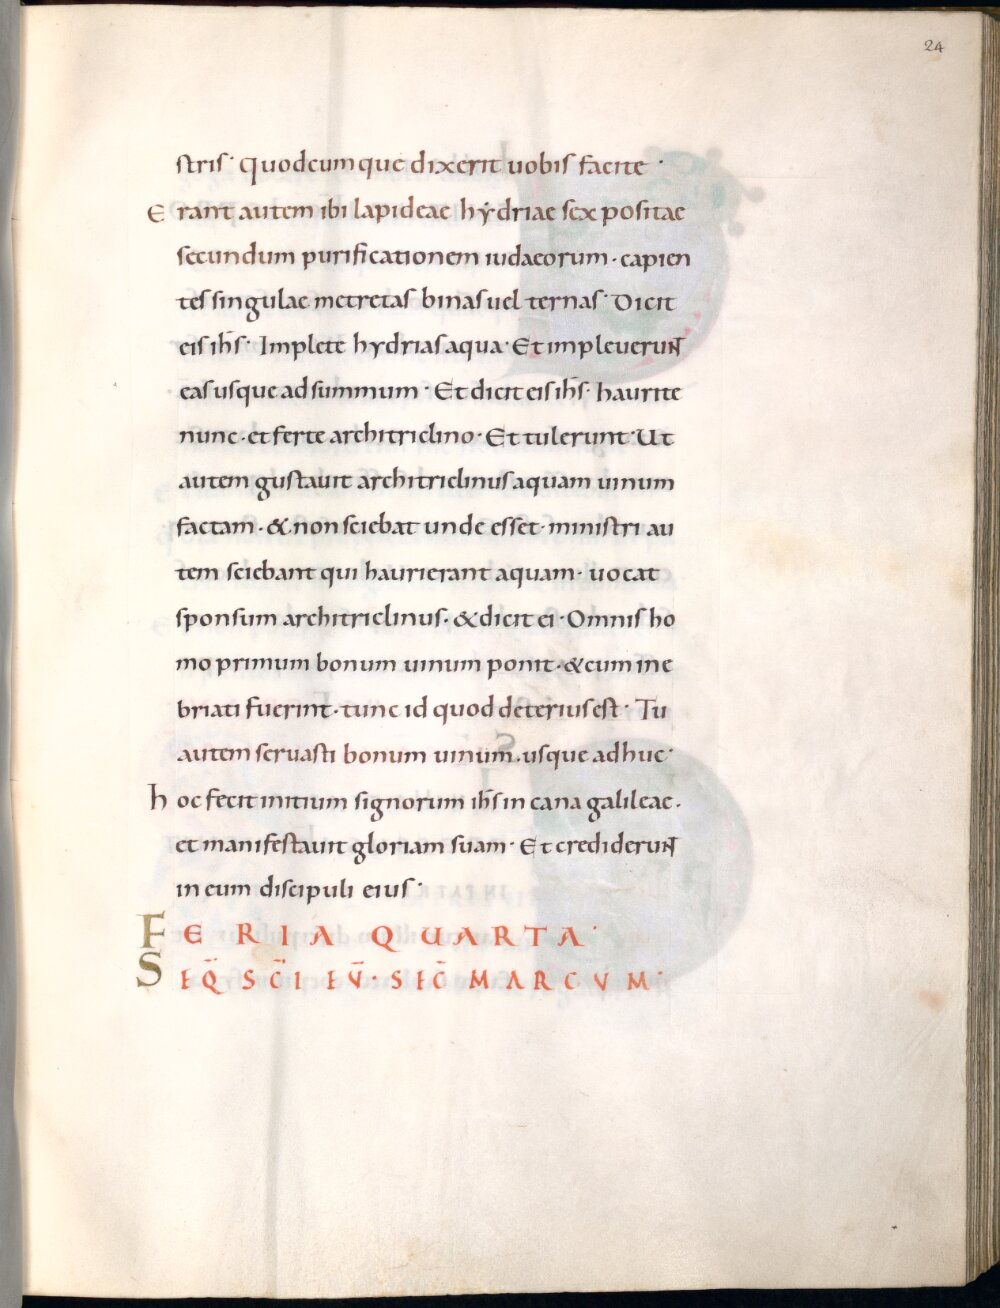 24
stris· quodcumque dixerit uobis facite·
Erant autem ibi lapideae hẏdriae sex positae
secundum purificationem iudaeorum· capien
tes singulae metretas binas uel ternas· Dicit
eis ih̅s· Implete hydrias aqua· Et impleuerunt
eas usque ad summum· Et dicit eis ih̅s· haurite
nunc· et ferte architriclino· Et tulerunt· Ut
autem gustauit architriclinus aquam uinum
factam· & non sciebat unde esset· ministri au
tem sciebant qui haurierant aquam· uocat
sponsum architriclinus· & dicit ei· Omnis ho
mo primum bonum uinum ponit· & cum ine
briati fuerint· tunc id quod deterius est· Tu
autem seruasti bonum uinum· usque adhuc·
hoc fecit initium signorum ih̅s in cana galileae·
et manifestauit gloriam suam· Et crediderunt
in eum discipuli eius·
FERIA QUARTA·
SEQ̅ SC̅I EV̅· SEC̅ MARCVM·